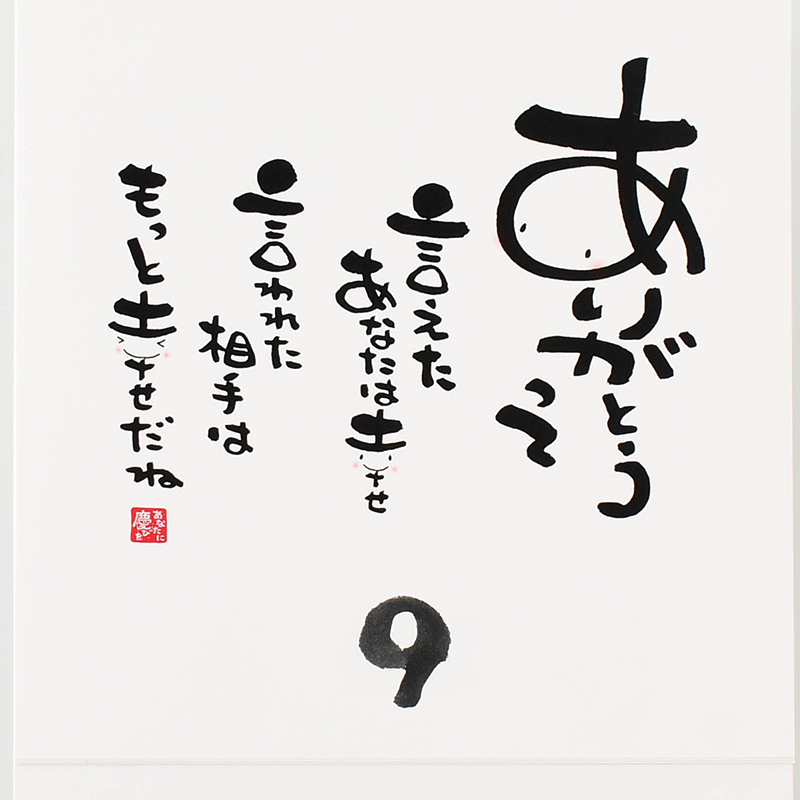 ありがとう
って
言えた
あなたは幸せ
言われた
相手は
もっと幸せだね
あなたに
慶びを
9